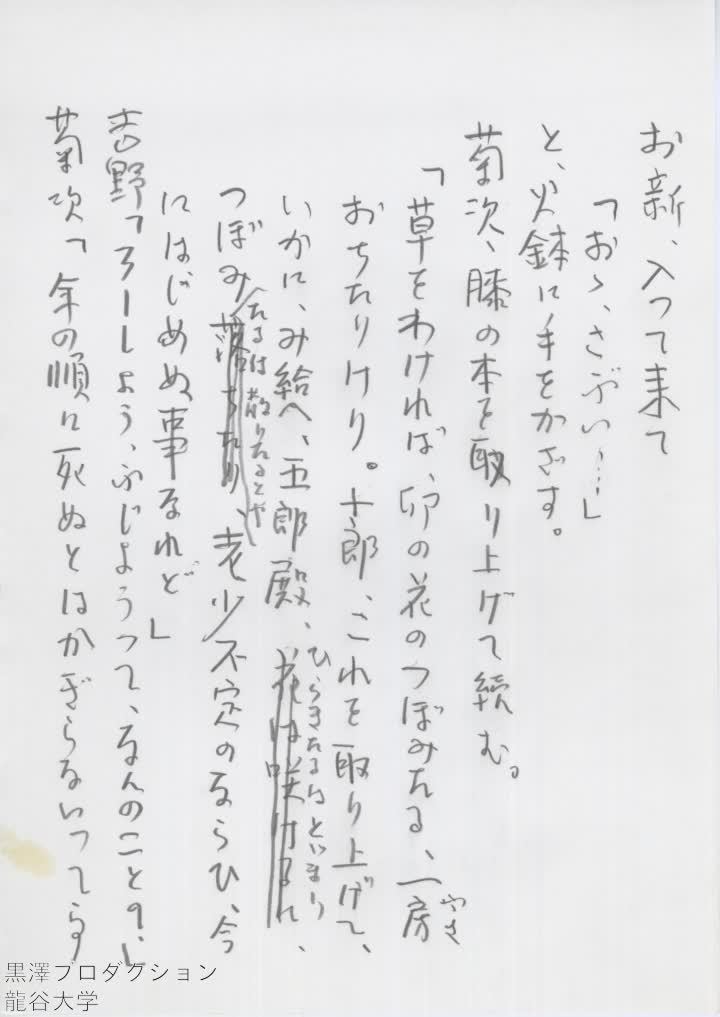 お新、入って来て
「おゝ、さぶい…」
と、火鉢に手をかざす。
菊次、膝の本を取り上げて続む。
「草をわければ、卯の花のつぼみたる、一房
ふさ
おちたりけり。十郎、これを取り上げて、
いかに、み給へ、五郎殿、花は咲ける、
ひらきたるはとゞまり
つぼみ落ちたり、老少不定のならひ、今
たるは散りたるとや
にはじめぬ事なれど」
吉野「ろーしよう、ふじようって、なんのことの」
菊次「年の順に死ぬとはかぎらないってらす
黒澤プロダクション
龍谷大学